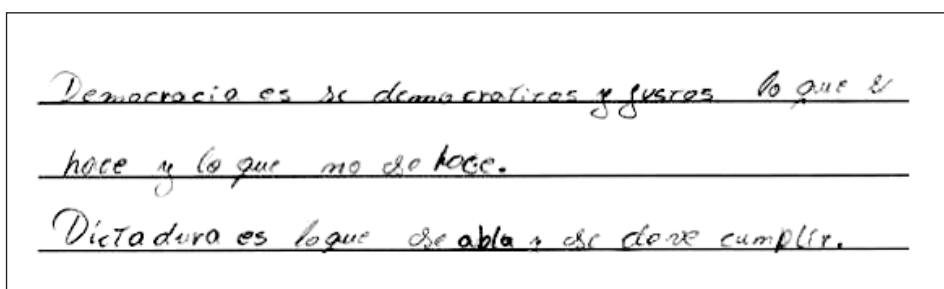 Democracia es se democraticos y justos lo que se
hace y lo que no se hace.
Dictadura es loque se abla y se deve cumplir.